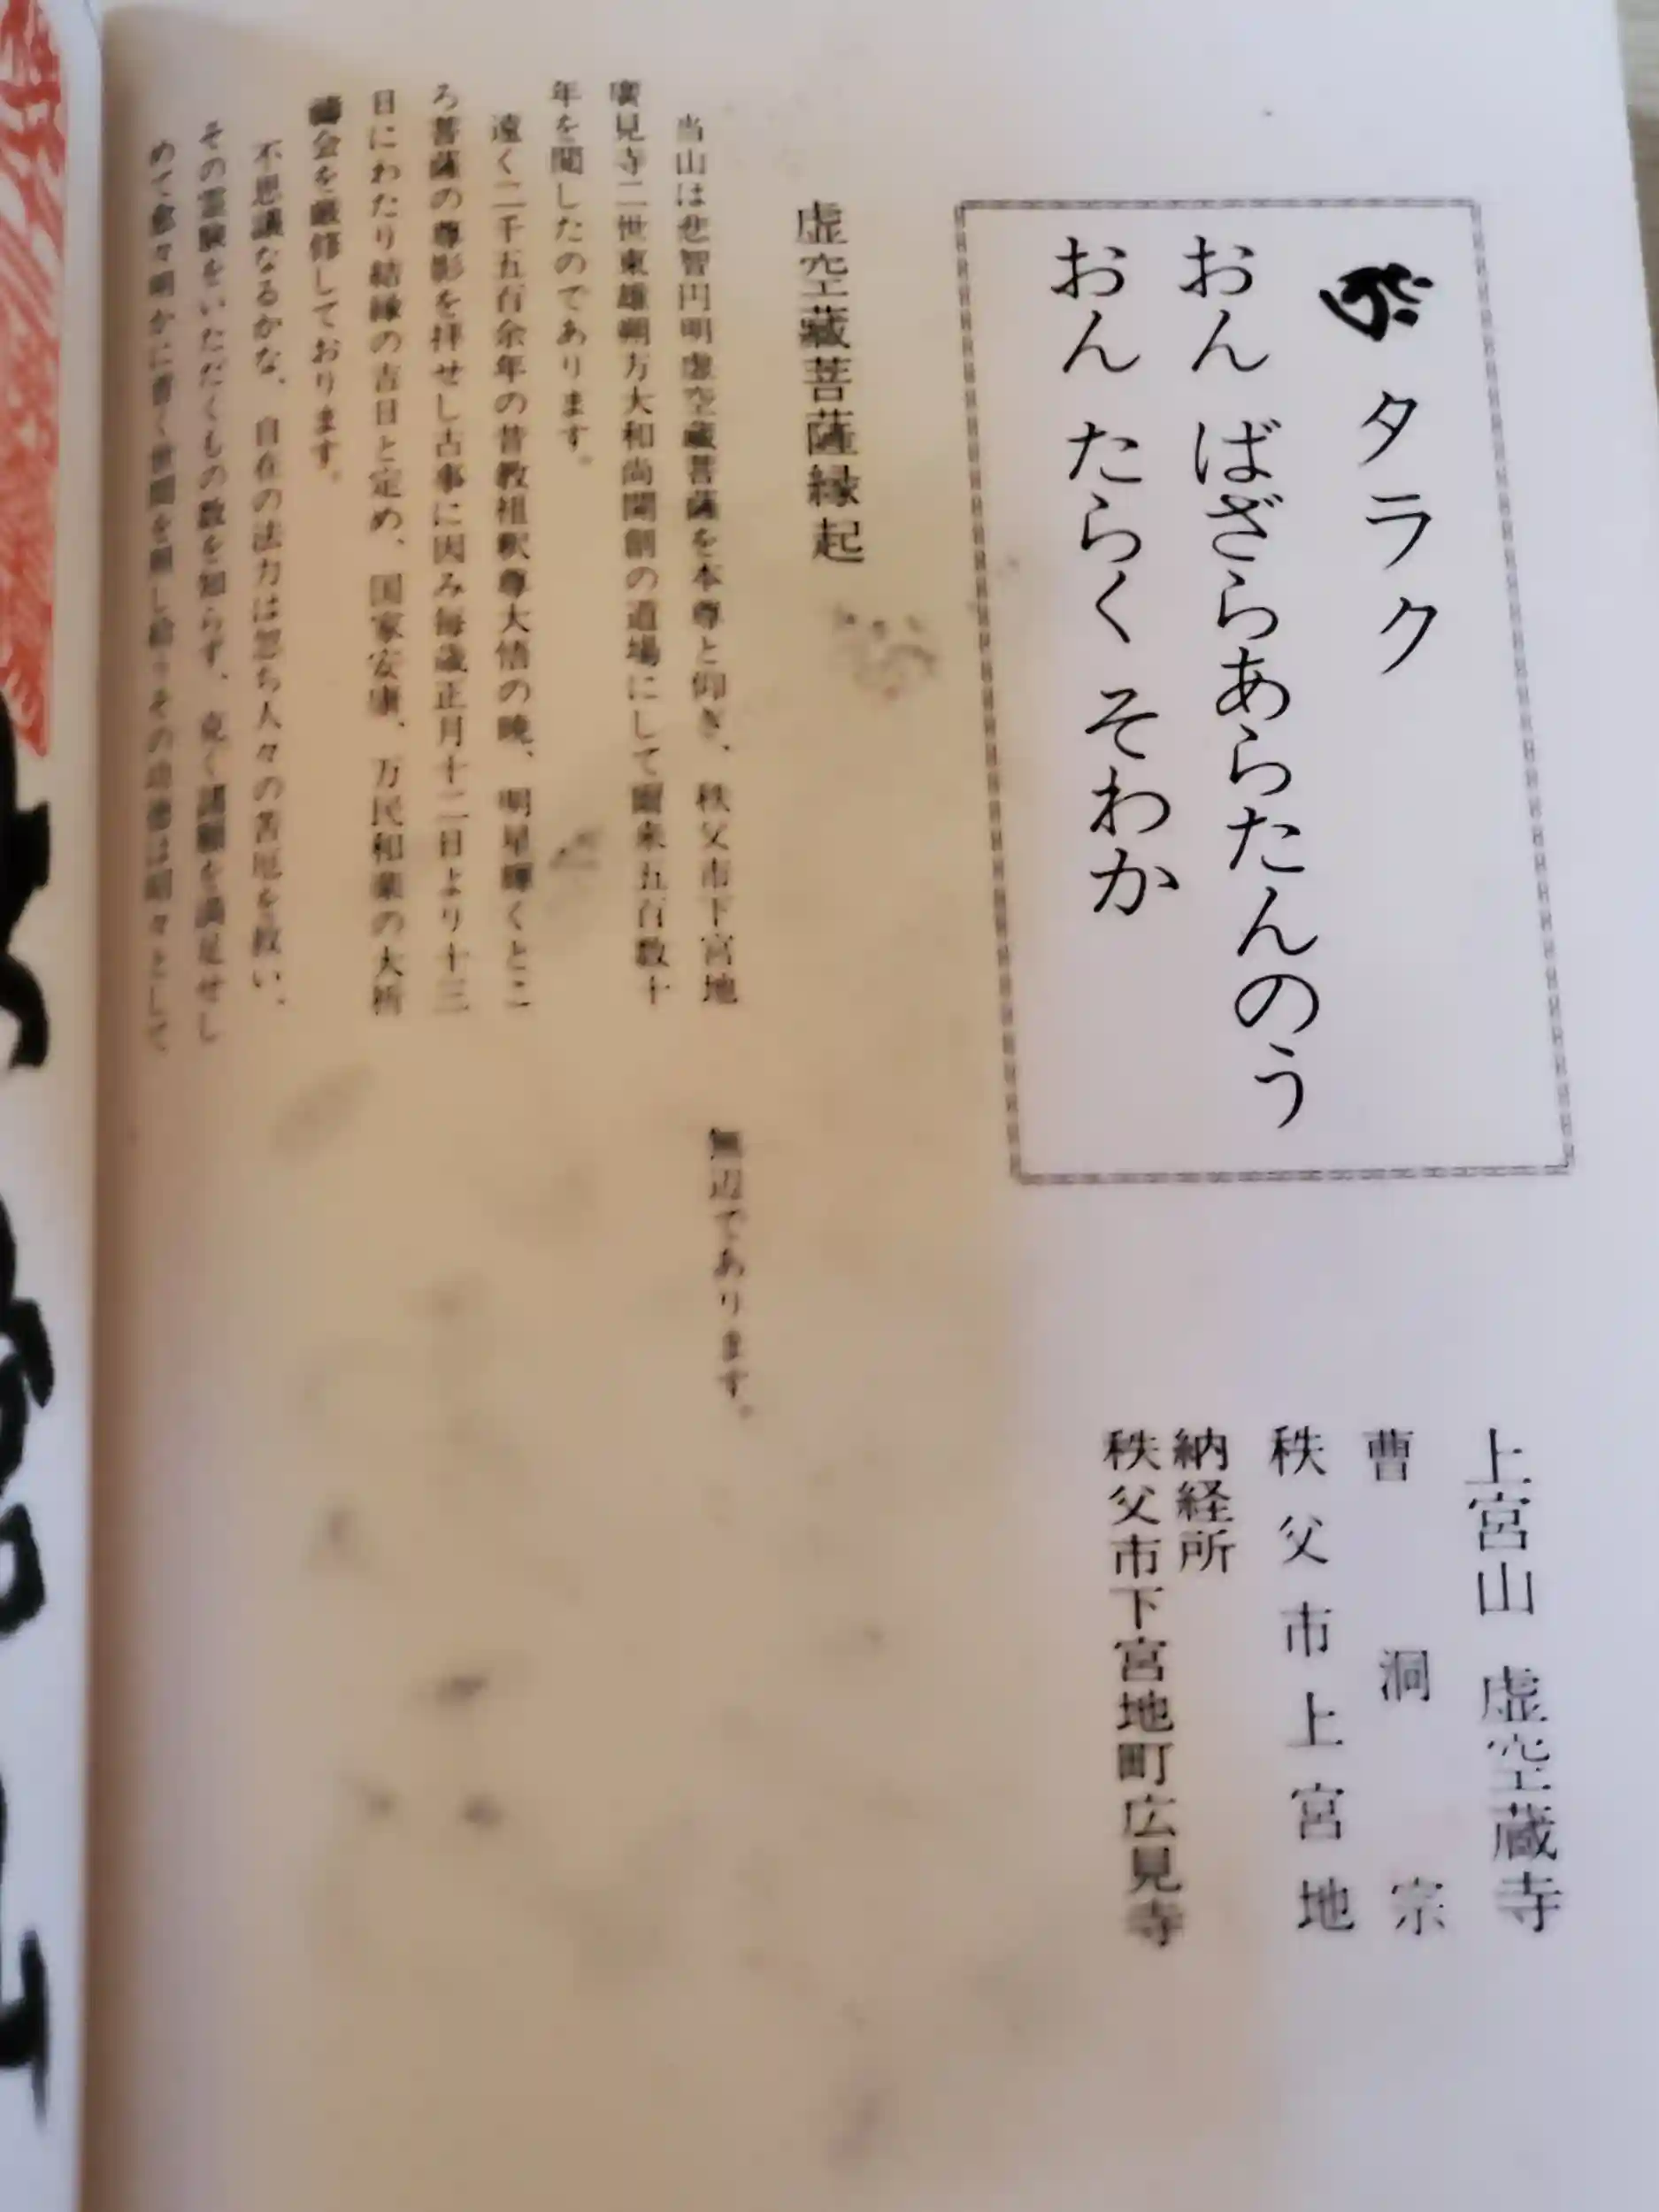 タラク
おん ばざらあらたんのう
おん たらく そわか
虚空藏菩薩縁起
当山は悲智円明虚空藏菩薩を本尊と仰ぎ、秩父市下宮地
廣見寺二世東雄朔方大和尚開創の道場にして爾来五百数十
年を閲したのであります。
遠く二千五百余年の昔教祖釈尊大悟の暁、明星輝くとこ
ろ菩薩の尊影を拝せし古事に因み毎歳正月十二日より十三
日にわたり結縁の吉日と定め、国家安康、万民和楽の大祈
禱会を厳修しております。
不思議なるかな、自在の法力は忽ち人々の苦厄を救い、
その霊験をいただくもの数を知らず、克く諸願を満足せし
めて愈々明かに普く世間を照し給うその功徳は昭々として
無辺であります。
上宮山 虚空蔵寺
曹洞宗
秩父市上宮地
納経所
秩父市下宮地町広見寺